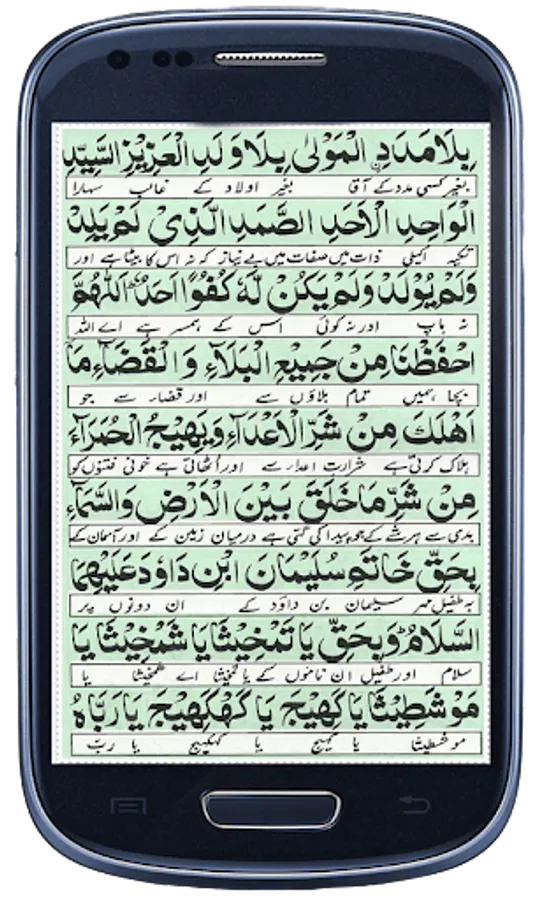 بِلَامَدَدِ الْمَوْلٰى بِلَاوَلَدِ الْعَزِيْزِ السَّيِّدِ
بغیر کسی مدد کے آقا بغیر اولاد کے غالب سہارا
الْوَاحِدِ الْاَحَدِ الصَّمَدِ الَّذِىْ لَمْ يَلِدْ
تکیہ اکیلی ذات میں صفات میں بے نیاز کہ نہ اس کا بیٹا ہے اور
وَلَمْ يُوْلَدْ وَلَمْ يَكُنْ لَّهٗ كُفُوًا اَحَدٌ اَللّٰهُمَّ
نہ باپ اور نہ کوئی اس کے ہمسر ہے اے اللہ
احْفَظْنَا مِنْ جَمِيْعِ الْبَلَاءِ وَالْقَضَاءِ مَا
بچا ہمیں تمام بلاؤں سے اور قضاء سے جو
اَهْلَكَ مِنْ شَرِّ الْاَعْدَآءِ وَيَهِيْجُ الْحُمَرَآءَ
ہلاک کرتی ہے شرارت اعداء سے اور اُٹھاتی ہے خونی فتنوں کو
مِنْ شَرِّ مَا خَلَقَ بَيْنَ الْاَرْضِ وَالسَّمَآءِ
بدی سے ہر شے کے جو پیدا کی گئی ہے درمیان زمین کے اور آسمان کے
بِحَقِّ خَاتَمِ سُلَيْمَانَ ابْنِ دَاوٗدَ عَلَيْهِمَا
بہ طفیل مہر سلیمان بن داؤد کے ان دونوں پر
السَّلَامُ وَبِحَقِّ يَا تَمْخِيْثَا يَا شَمْخِيْثَا يَا
سلام اور طفیل ان ناموں کے یا تمخیثا اے شمخیثا یا
مَوْشَطِيْثَا يَا كَهِيْجَ يَا كَهْكَهِيْجَ يَا رَبَّاهُ
موشطیثا یا کہیج یا کہکہیج یا ربّ